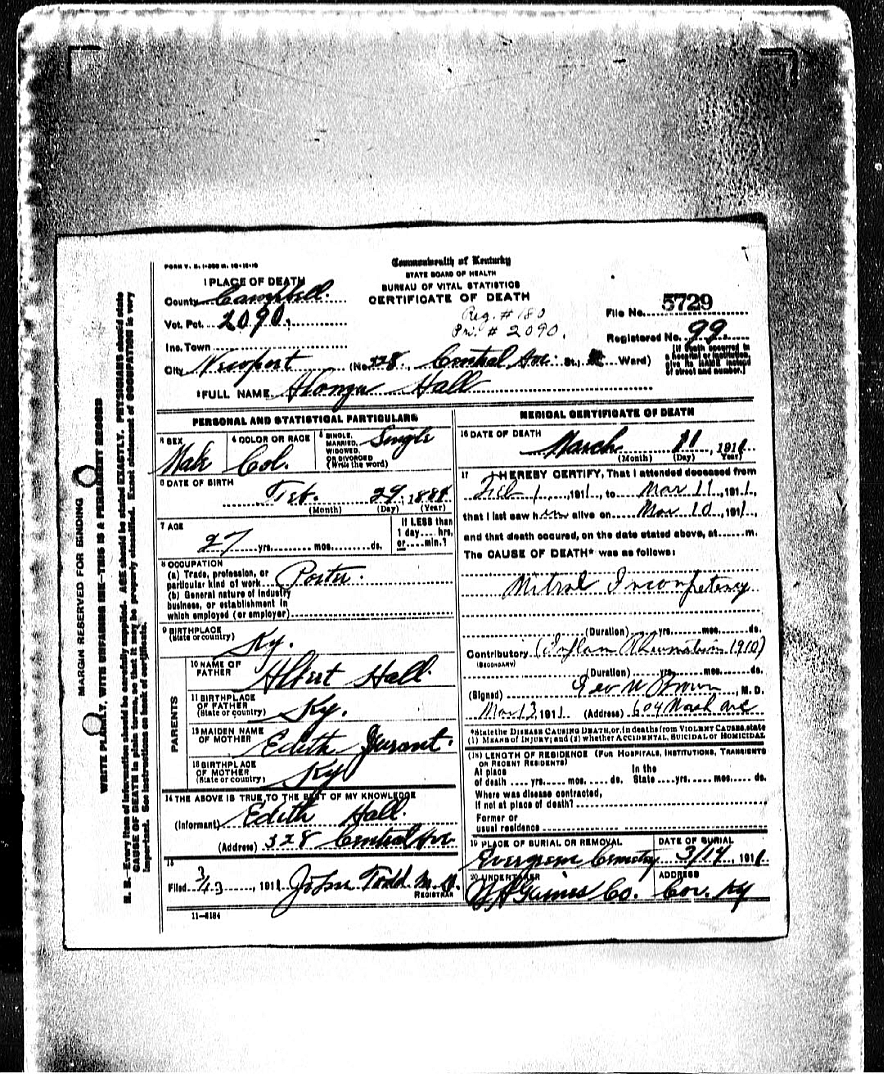 FORM V. S. 1-
Commonwealth of Kentucky
STATE BOARD OF HEALTH
BUREAU OF VITAL STATISTICS
CERTIFICATE OF DEATH
1 PLACE OF DEATH
County Campbell.
Vot. Pct. 2090.
Reg. # 180
# 2090.
File No. 5729
Registered No. 99
Inc. Town
City Newport (No. 328. Central Ave St.; Ward)
[If death occurred in a hospital or institution, give its NAME instead of street and number.]
2 FULL NAME Alonzo Hall
PERSONAL AND STATISTICAL PARTICULARS
3 SEX Male
4 COLOR OR RACE Col.
5 SINGLE, MARRIED, WIDOWED, OR DIVORCED (Write the word) Single
6 DATE OF BIRTH
Feb. 29, 188
(Month) (Day) (Year)
7 AGE
27 yrs. mos. ds.
If LESS than 1 day hrs. or min.?
8 OCCUPATION
(a) Trade, profession, or particular kind of work Porter.
(b) General nature of industry business, or establishment in which employed (or employer)
9 BIRTHPLACE
(State or country) Ky.
PARENTS
10 NAME OF FATHER Albert Hall.
11 BIRTHPLACE OF FATHER (State or country) Ky.
12 MAIDEN NAME OF MOTHER Edith
13 BIRTHPLACE OF MOTHER (State or country) Ky
14 THE ABOVE IS TRUE TO THE BEST OF MY KNOWLEDGE
(Informant) Edith Hall.
(Address) 328 Central Ave
15
Filed 3/13, 1911 John Todd M.D.
REGISTRAR
11-5184
MEDICAL CERTIFICATE OF DEATH
16 DATE OF DEATH
March 11, 1911
(Month) (Day) Year)
17 I HEREBY CERTIFY, That I attended deceased from
Feb 1, 1911, to Mar 11, 1911,
that I last saw him alive on Mar 10, 1911,
and that death occured, on the date stated above, at m.
The CAUSE OF DEATH* was as follows:
Mitral Incompetency
(Duration) yrs. mos. ds.
Contributory (Inflam Rheumatism 1910)
(SECONDARY)
(Duration) yrs. mos. ds.
(Signed) Geo W Brown, M. D.
Mar 13, 1911 (Address) 604 Ave
*State the DISEASE CAUSING DEATH, or, in deaths from VIOLENT CAUSES, state
(1) MEANS of INJURY; and (2) whether ACCIDENTAL, SUICIDAL or HOMICIDAL
(18) LENGTH OF RESIDENCE (FOR HOSPITALS, INSTITUTIONS, TRANSIENTS OR RECENT RESIDENTS)
At place of death yrs. mos. ds. In the State yrs. mos. ds.
Where was disease contracted,
If not at place of death?
Former or
usual residence
19 PLACE OF BURIAL OR REMOVAL
Evergreen Cemetery
DATE OF BURIAL
3/14, 1911
20 UNDERTAKER
Gaines Co.
ADDRESS
Cov. Ky
MARGIN RESERVED FOR BINDING
WRITE PLAINLY, WITH UNFADING INK—THIS IS A PERMANENT RECORD
N. B.—Every item of information should be carefully supplied. AGE should be stated EXACTLY. PHYSICIANS should state
CAUSE OF DEATH in plain terms, so that it may be properly classified. Exact statement of OCCUPATION is very
important. See instructions on back of certificate.